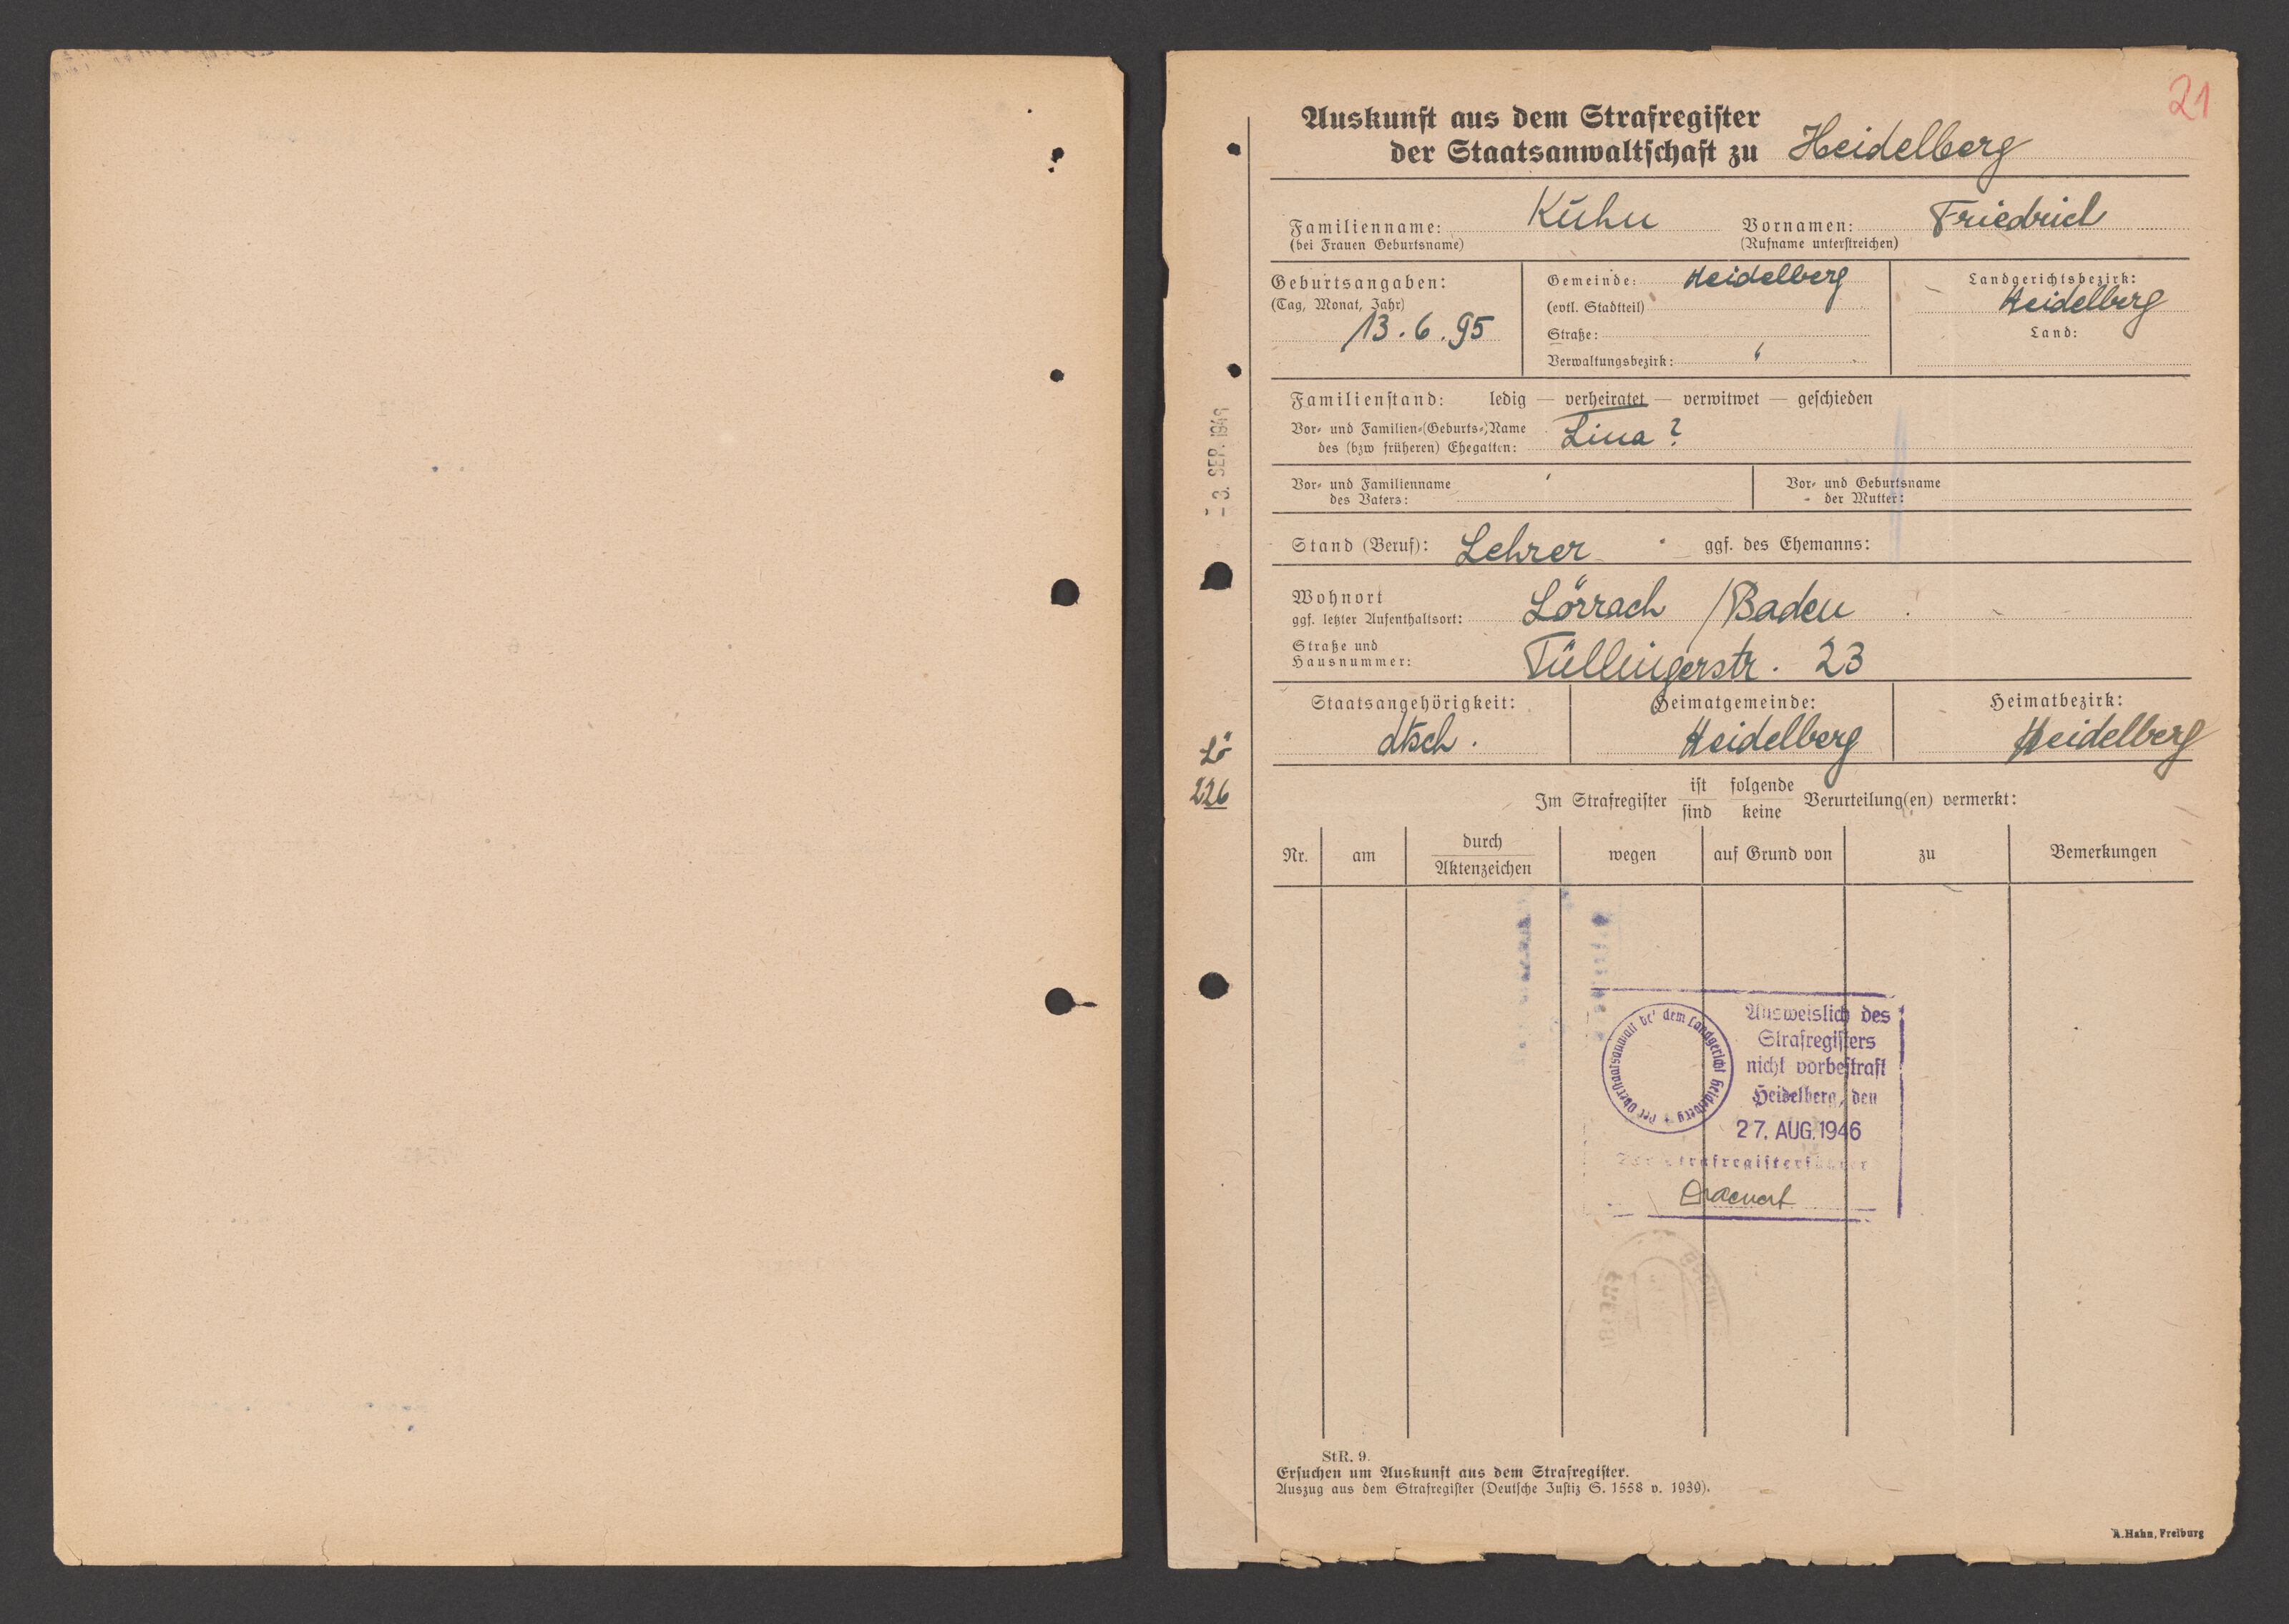 21
Auskunft aus dem Strafregister
der Staatsanwaltschaft zu Heidelberg
Familienname: Kuhn Vornamen: Friedrich
(bei Frauen Geburtsname) (Rufname unterstreichen)
Geburtsangaben:
(Tag, Monat, Jahr)
13.6.95
Gemeinde: Heidelberg
(evtl. Stadtteil)
Straße:
Verwaltungsbezirk: "
Landgerichtsbezirk:
Heidelberg
Land:
Familienstand: ledig — verheiratet — verwitwet — geschieden
Vor- und Familien-(Geburts-)Name
des (bzw früheren) Ehegatten: Lina ?
Vor- und Familienname
des Vaters:
Vor- und Geburtsname
der Mutter:
Stand (Beruf): Lehrer ggf. des Ehemanns:
Wohnort
ggf. letzter Aufenthaltsort: Lörrach / Baden
Straße und
Hausnummer: Tüllingerstr. 23
Staatsangehörigkeit: Heimatgemeinde: Heimatbezirk:
dtsch. Heidelberg Heidelberg
Im Strafregister ist/sind folgende/keine Verurteilung(en) vermerkt:
Nr. am durch/Aktenzeichen wegen auf Grund von zu Bemerkungen
Der Oberstaatsanwalt bei dem Landgericht Heidelberg
Ausweislich des
Strafregisters
nicht vorbestraft
Heidelberg, den
27. AUG. 1946
Der Strafregisterführer
- 3. SEP. 1946
Lö
226
StR. 9.
Ersuchen um Auskunft aus dem Strafregister.
Auszug aus dem Strafregister (Deutsche Justiz S. 1558 v. 1939).
A. Hahn, Freiburg